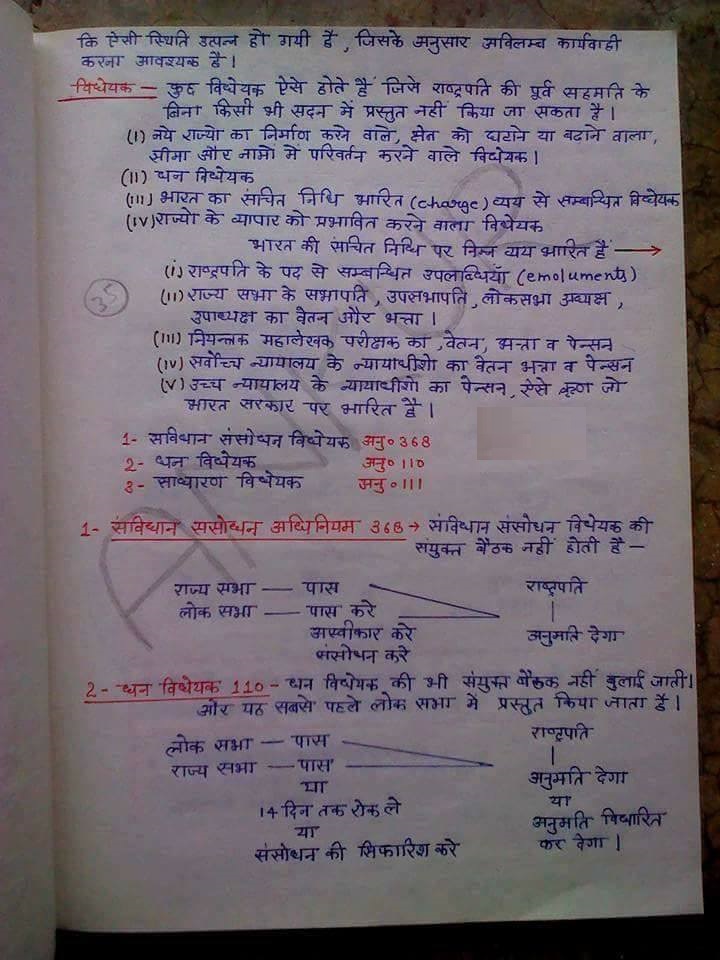 कि ऐसी स्थिति उत्पन्न हो गयी है, जिसके अनुसार अविलम्ब कार्यवाही
करना आवश्यक है।
विधेयक — कुछ विधेयक ऐसे होते हैं जिसे राष्ट्रपति की पूर्व सहमति के
बिना किसी भी सदन में प्रस्तुत नहीं किया जा सकता है।
(I) नये राज्यो का निर्माण करने वाले, क्षेत्र को घटाने या बढाने वाला,
सीमा और नामों में परिवर्तन करने वाले विधेयक।
(II) धन विधेयक
(III) भारत का संचित निधि भारित (charge) व्यय से सम्बन्धित विधेयक
(IV) राज्यो के व्यापार को प्रभावित करने वाला विधेयक
भारत की संचित निधि पर निम्न व्यय भारित है →
(i) राष्ट्रपति के पद से सम्बन्धित उपलब्धियाँ (emoluments)
35
(II) राज्य सभा के सभापति, उपसभापति, लोकसभा अध्यक्ष,
उपाध्यक्ष का वेतन और भत्ता।
(III) नियन्त्रक महालेखक परीक्षक का, वेतन, भत्ता व पेन्सन
(IV) सर्वोच्च न्यायालय के न्यायाधीशो का वेतन भत्ता व पेन्सन
(V) उच्च न्यायालय के न्यायाधीशो का पेन्सन, ऐसे ऋण जो
भारत सरकार पर भारित है।
1- संविधान संसोधन विधेयक अनु० 368
2- धन विधेयक अनु० 110
3- साधारण विधेयक अनु० 111
1- संविधान संसोधन अधिनियम 368 → संविधान संसोधन विधेयक की
संयुक्त बैठक नहीं होती है —
राज्य सभा — पास राष्ट्रपति
लोक सभा — पास करे
अस्वीकार करे अनुमति देगा
संसोधन करे
2- धन विधेयक 110 - धन विधेयक की भी संयुक्त बैठक नहीं बुलाई जाती।
और यह सबसे पहले लोक सभा में प्रस्तुत किया जाता है।
लोक सभा — पास राष्ट्रपति
राज्य सभा — पास
या अनुमति देगा
14 दिन तक रोक ले या
या अनुमति विधारित
संसोधन की सिफारिश करे कर देगा।
ANKUR